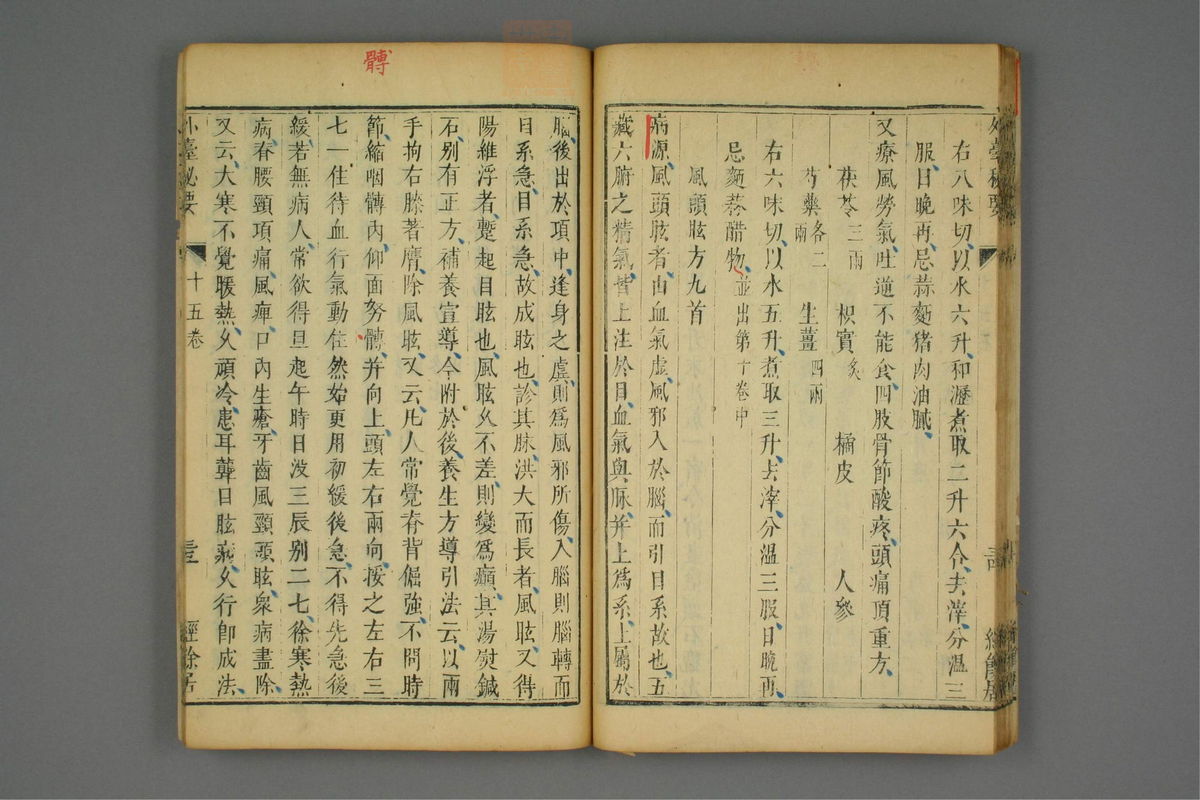 右八味切以水六升和瀝煮取二升六合去滓分溫三
服日晚再忌蒜麪猪肉油膩
又療風勞氣吐逆不能食四肢骨節酸疼頭痛頂重方
茯苓三兩 枳實炙 橘皮 人參
芍藥各二兩 生薑四兩
右六味切以水五升煮取三升去滓分溫三服日晚再
忌麪蒜醋物並出第十卷中
風頭眩方九首
病源風頭眩者由血氣虛風邪入於腦而引目系故也五
藏六腑之精氣皆上注於目血氣與脉并上爲系上屬於
髆
腦後出於項中逢身之虛則爲風邪所傷入腦則腦轉而
目系急目系急故成眩也診其脉洪大而長者風眩又得
陽維浮者蹔起目眩也風眩久不差則變爲癲其湯熨鍼
石别有正方補養宣導今附於後養生方導引法云以兩
手拘右膝著膺除風眩又云凡人常覺脊背倔強不問時
節縮咽髆内仰面努髆并向上頭左右兩向挼之左右三
七一住待血行氣動住然始更用初緩後急不得先急後
緩若無病人常欲得旦起午時日没三辰别二七徐寒熱
病脊腰頸項痛風痺口内生瘡牙齒風頸頭眩衆病盡除
又云大寒不覺暖熱久頑冷患耳聾目眩病久行卽成法
外臺秘要 十五卷 經餘居